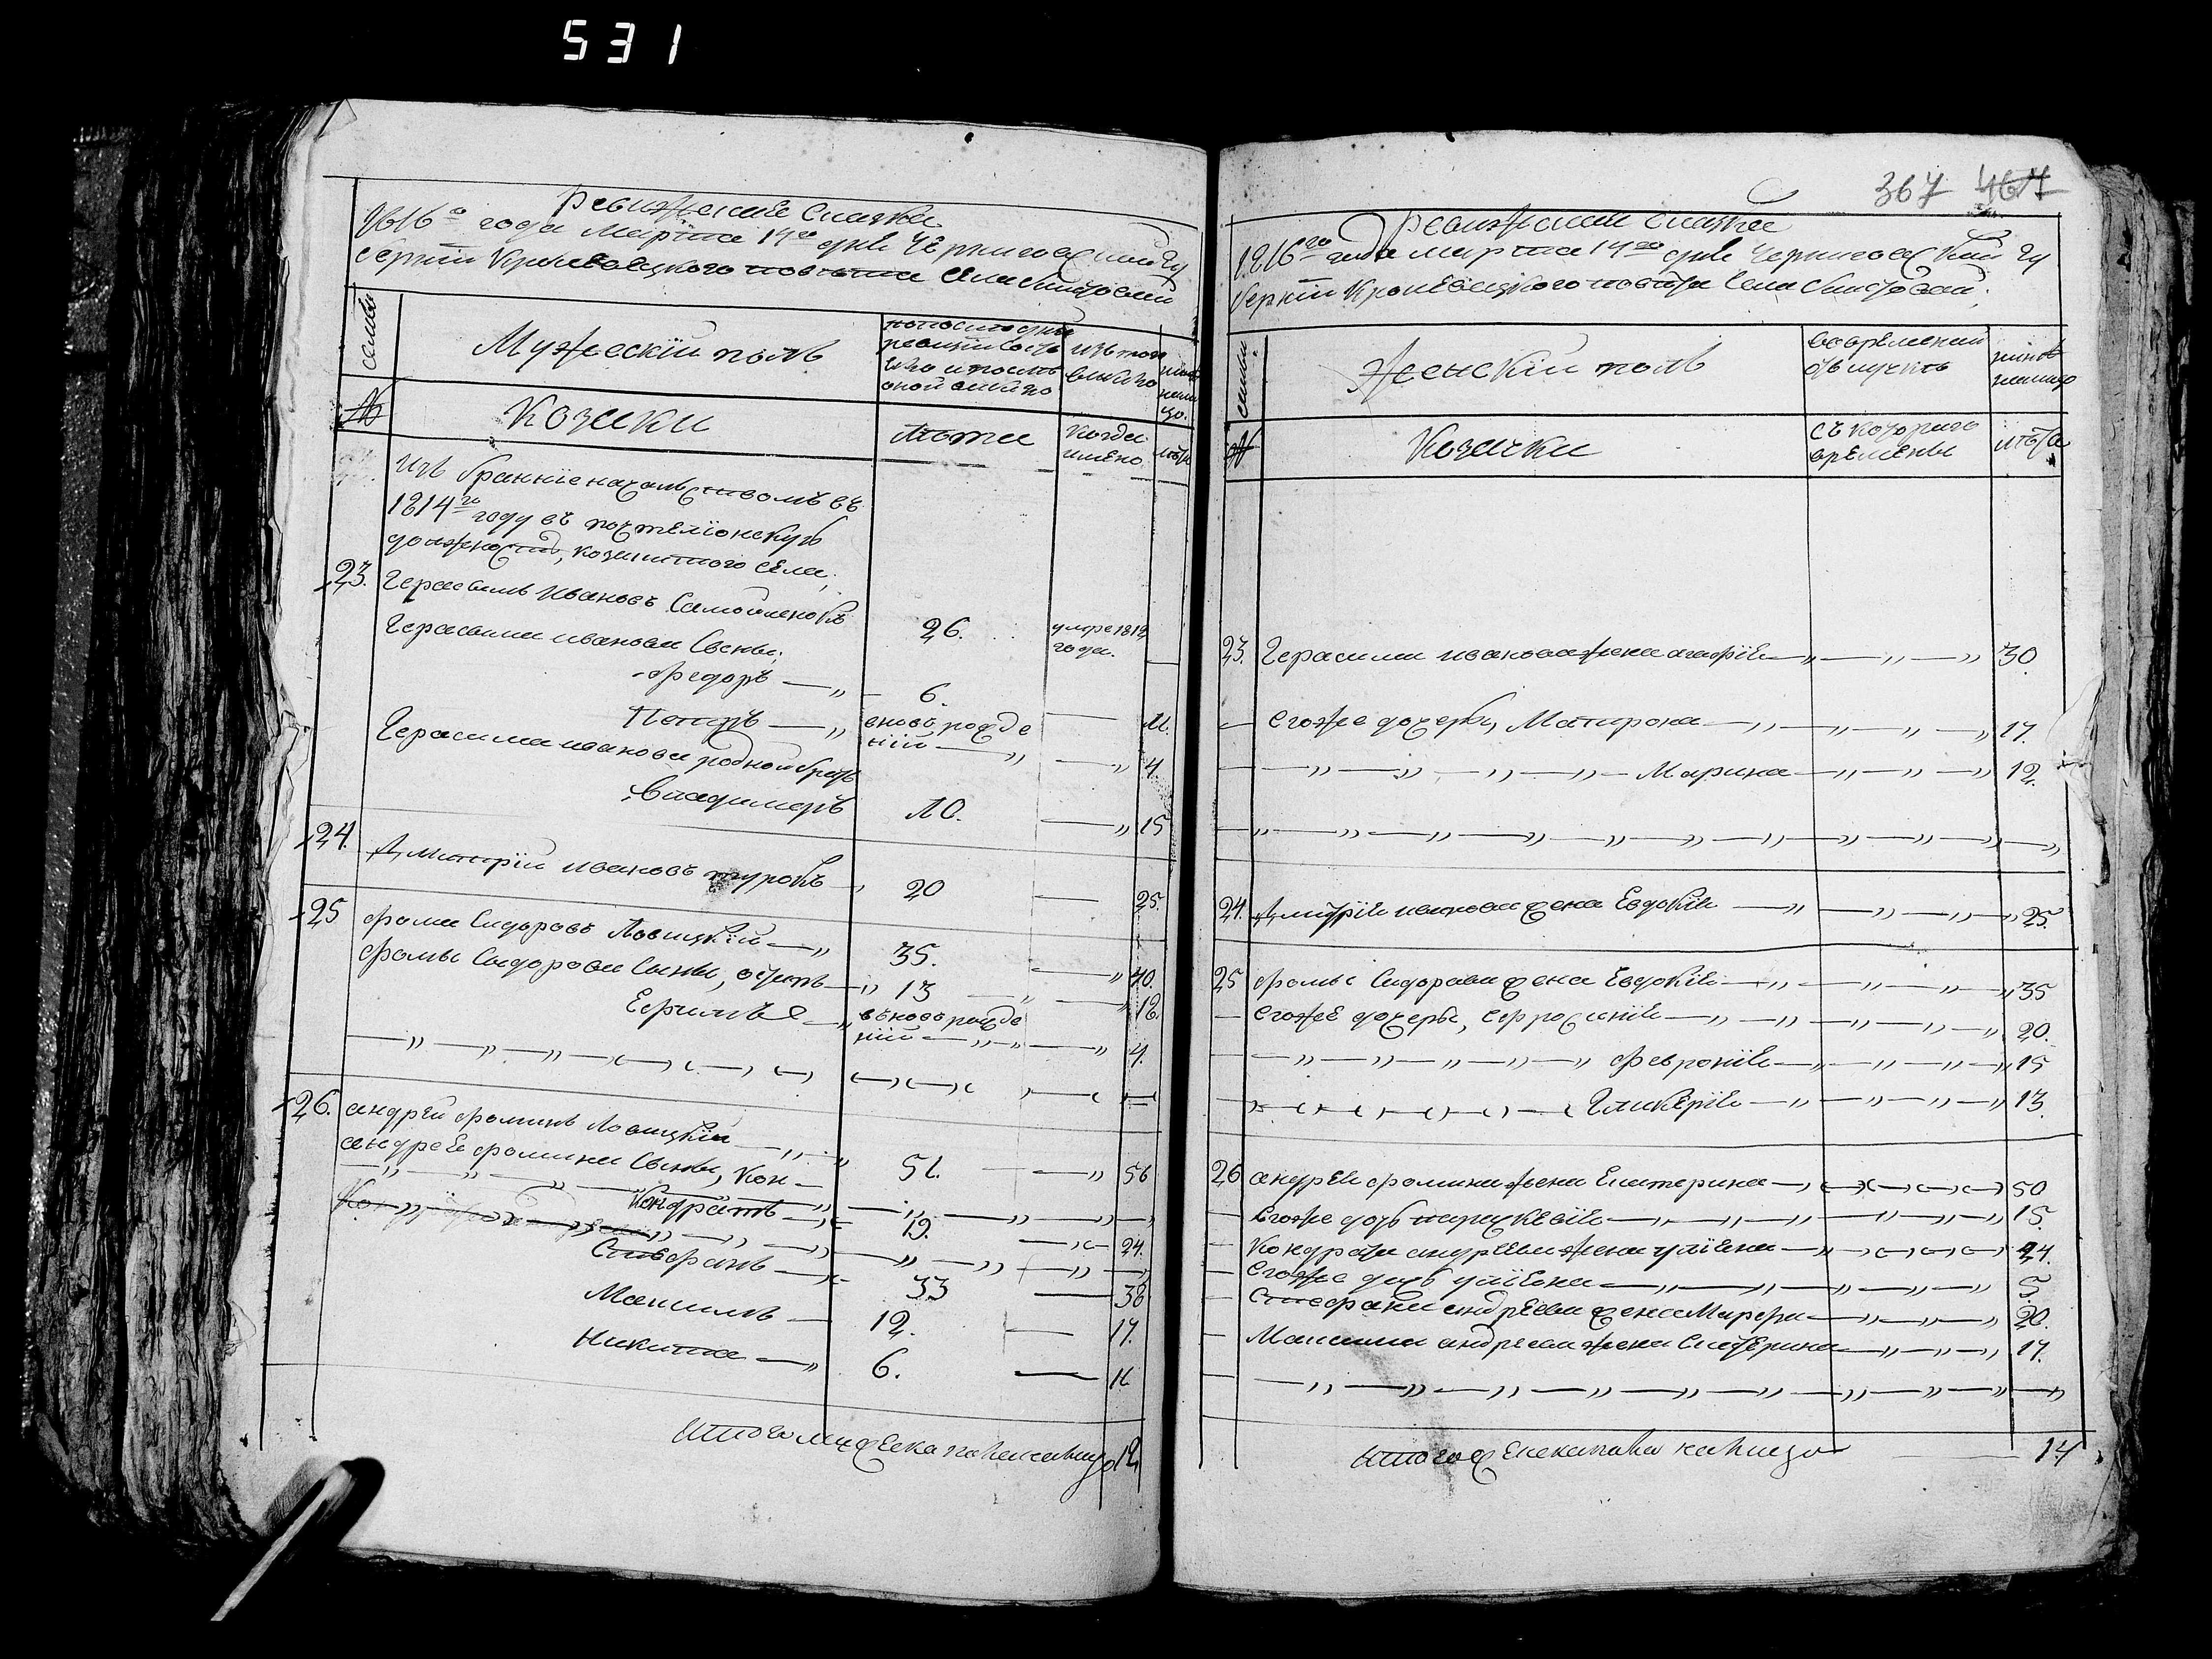 531
ревизская сказка
1816го года марта 14го дня Черниговской гу
бернии Кролевецкого повета села
семьи
Мужеский полъ
по последней
ревизии состо
яло и после
оной
изъ того
выбыло
ныне
на ли
цо.
№
Козаки
лета
когда
имено
лета
изъ бранние началствомъ въ
1814го году въ почтелионскую
должность, козаки того села,
23. Герасимъ Ивановъ Самойленокъ 26. умре 1812 года.
Герасима иванова сыны,
федоръ 6. 11.
Петръ вновь рожде
ній 4.
Герасима иванова родной братъ
Владимеръ 10. 15
24. Дмитрій ивановъ турокъ 20 25.
25 фома Сидоровъ Ловицкій 35. 40.
фомы Сидорова сыны, 13 18.
Ефимъ вновь рожде
ній 4.
26. андрей фоминъ Ловицкій 51. 56
андрея фомина сыны, кон
Кондратъ 19. 24.
Стефанъ 33 38
Максимъ 12. 17.
Никита 6. 11
итого мужеска пола на лицо 12
367 467
ревизская сказка
1816го года марта 14го дня Черниговской гу
бернии Кролевецкого повета села
семьи
Женскій полъ
во временной
отлучке
ныне
на лицо
№
Козачки
съ которого
времены
лета
23. Герасима иванова жена агафія 30
егоже дочери, Матрона 17.
Марина 12.
24. Дмитрія иванова жена Евдокія 25.
25 фомы Сидорова жена Евдокія 35
егоже дочери, ефросинія 20.
Февронія 15
Гликерія 13.
26 андрея фомина жена Екатерина 50
егоже дочь 15.
Кондрата андреева жена уліяна 24.
егоже дочь уліяна 5.
Стефана андреева жена Марфа 20.
Максима андреева жена Екатерина 17.
итого женска пола на лицо 14